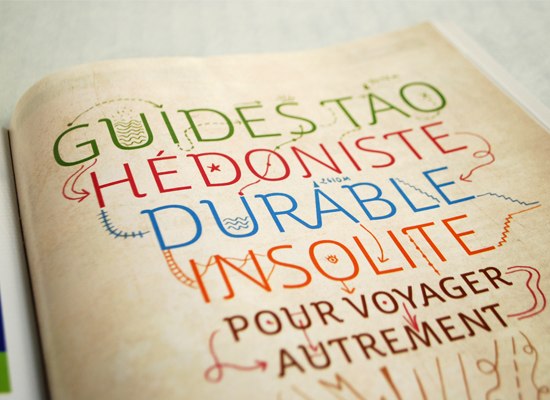 GUIDES TAO
HÉDONISTE
DURABLE
INSOLITE
POUR VOYAGER
AUTREMENT